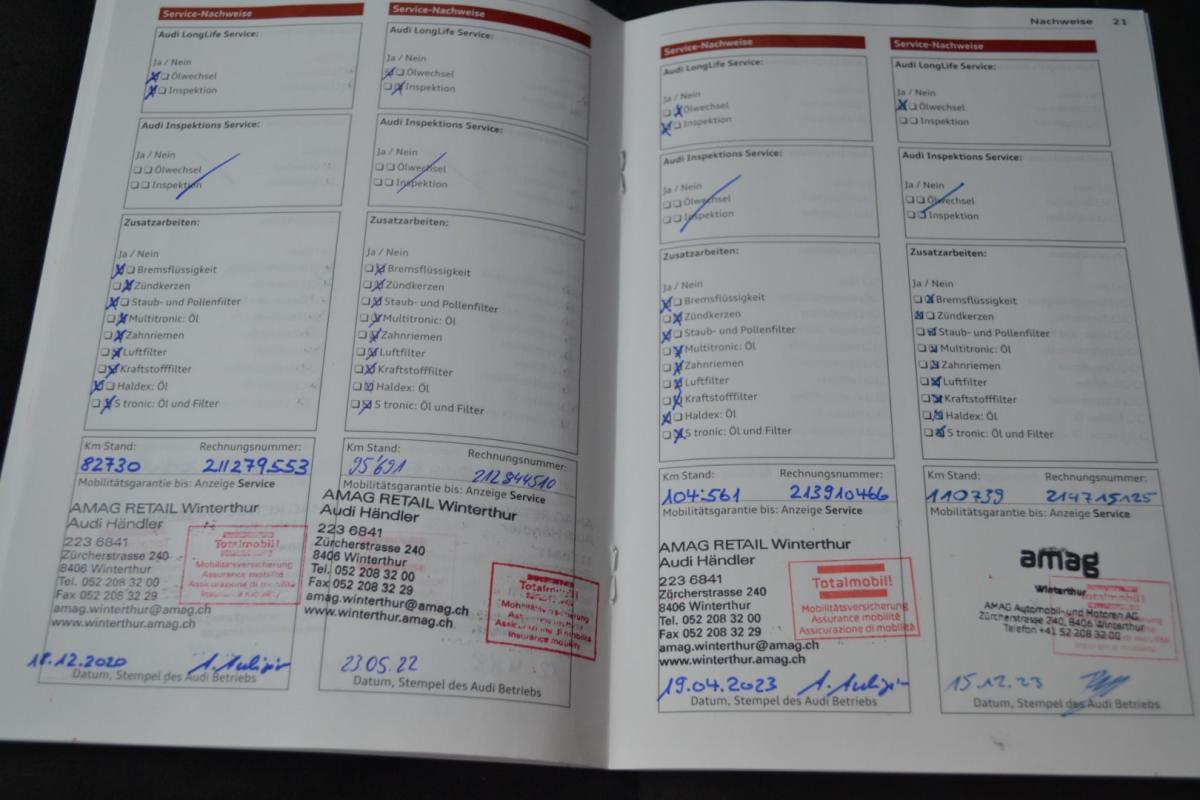 Nachweise 21
Service-Nachweise
Audi LongLife Service:
Ja / Nein
Ölwechsel
Inspektion
Audi Inspektions Service:
Ja / Nein
Ölwechsel
Inspektion
Zusatzarbeiten:
Ja / Nein
Bremsflüssigkeit
Zündkerzen
Staub- und Pollenfilter
Multitronic: Öl
Zahnriemen
Luftfilter
Kraftstofffilter
Haldex: Öl
S tronic: Öl und Filter
Km Stand: Rechnungsnummer:
82730 211279553
Mobilitätsgarantie bis: Anzeige Service
AMAG RETAIL Winterthur
Audi Händler
223 6841
Zürcherstrasse 240
8406 Winterthur
Tel. 052 208 32 00
Fax 052 208 32 29
amag.winterthur@amag.ch
www.winterthur.amag.ch
Totalmobil!
Mobilitätsversicherung
Assurance mobilité
Assicurazione di mobilità
Insurance mobility
18.12.2020
Datum, Stempel des Audi Betriebs
Service-Nachweise
Audi LongLife Service:
Ja / Nein
Ölwechsel
Inspektion
Audi Inspektions Service:
Ja / Nein
Ölwechsel
Inspektion
Zusatzarbeiten:
Ja / Nein
Bremsflüssigkeit
Zündkerzen
Staub- und Pollenfilter
Multitronic: Öl
Zahnriemen
Luftfilter
Kraftstofffilter
Haldex: Öl
S tronic: Öl und Filter
Km Stand: Rechnungsnummer:
95'691 212844510
Mobilitätsgarantie bis: Anzeige Service
AMAG RETAIL Winterthur
Audi Händler
223 6841
Zürcherstrasse 240
8406 Winterthur
Tel. 052 208 32 00
Fax 052 208 32 29
amag.winterthur@amag.ch
www.winterthur.amag.ch
Totalmobil!
Mobilitätsversicherung
Assurance mobilité
Assicurazione di mobilità
Insurance mobility
23.05.22
Datum, Stempel des Audi Betriebs
Service-Nachweise
Audi LongLife Service:
Ja / Nein
Ölwechsel
Inspektion
Audi Inspektions Service:
Ja / Nein
Ölwechsel
Inspektion
Zusatzarbeiten:
Ja / Nein
Bremsflüssigkeit
Zündkerzen
Staub- und Pollenfilter
Multitronic: Öl
Zahnriemen
Luftfilter
Kraftstofffilter
Haldex: Öl
S tronic: Öl und Filter
Km Stand: Rechnungsnummer:
104'561 213910466
Mobilitätsgarantie bis: Anzeige Service
AMAG RETAIL Winterthur
Audi Händler
223 6841
Zürcherstrasse 240
8406 Winterthur
Tel. 052 208 32 00
Fax 052 208 32 29
amag.winterthur@amag.ch
www.winterthur.amag.ch
Totalmobil!
Mobilitätsversicherung
Assurance mobilité
Assicurazione di mobilità
19.04.2023
Datum, Stempel des Audi Betriebs
Service-Nachweise
Audi LongLife Service:
Ja / Nein
Ölwechsel
Inspektion
Audi Inspektions Service:
Ja / Nein
Ölwechsel
Inspektion
Zusatzarbeiten:
Ja / Nein
Bremsflüssigkeit
Zündkerzen
Staub- und Pollenfilter
Multitronic: Öl
Zahnriemen
Luftfilter
Kraftstofffilter
Haldex: Öl
S tronic: Öl und Filter
Km Stand: Rechnungsnummer:
110739 214715125
Mobilitätsgarantie bis: Anzeige Service
amag
Winterthur
AMAG Automobil- und Motoren AG
Zürcherstrasse 240, 8406 Winterthur
Telefon +41 52 208 32 00
Totalmobil!
15.12.23
Datum, Stempel des Audi Betriebs